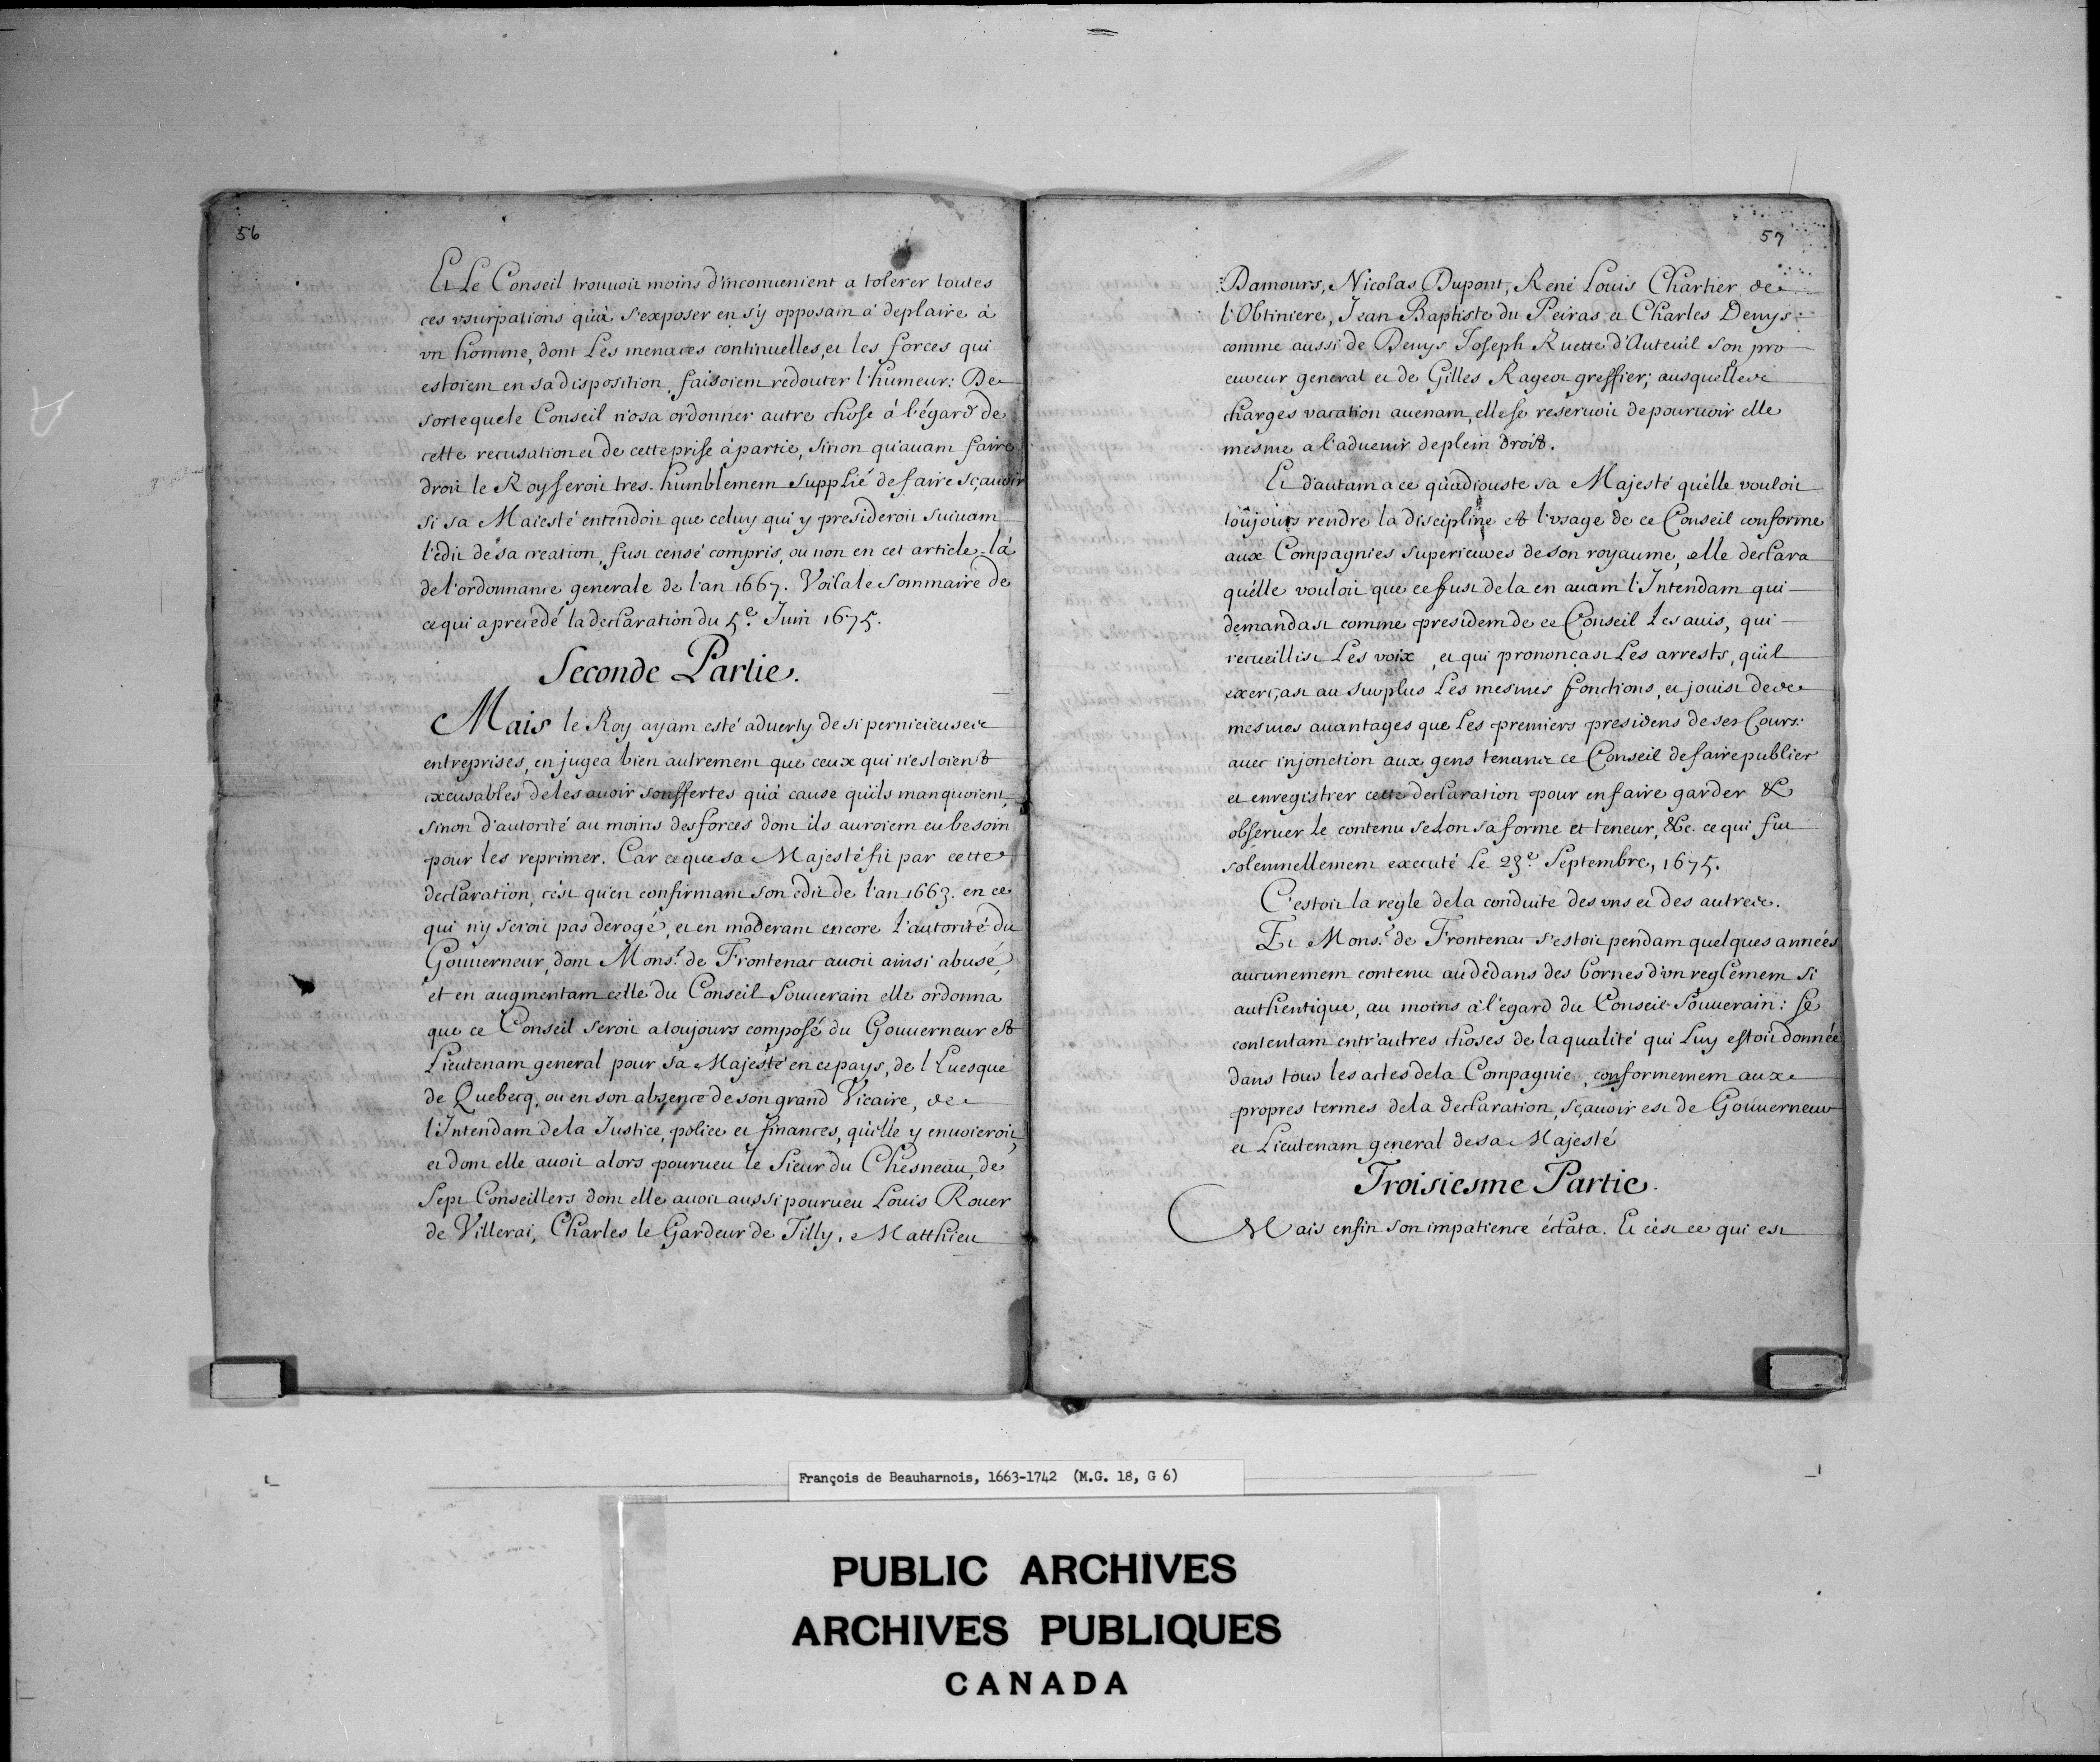 56
Et Le Conseil trouuoit moins d'inconuenient a tolerer toutes
ces vsurpations qu'à s'exposer en s'y opposant à deplaire à
vn homme, dont Les menaces continuelles, et les forces qui
estoient en sa disposition, faisoient redouter l'humeur: De
sorte que le Conseil n'osa ordonner autre chose à l'égard de
cette recusation et de cette prise à partie, sinon qu'auant faire
droit le Roy seroit tres-humblement suppLié de faire sçauoir
si sa Maiesté entendoit que celuy qui y presideroit suiuant
l'edit de sa creation, fust censé compris, ou non en cet article-là
de l'ordonnance generale de l'an 1667. Voila le sommaire de
ce qui a precedé la declaration du 5e. Juin 1675.
Seconde Partie.
Mais le Roy ayant esté aduerty de si pernicieuses
entreprises, en jugea bien autrement que ceux qui n'estoient
excusables de les auoir souffertes qu'à cause qu'ils manquoient,
sinon d'autorité au moins des forces dont ils auroient eu besoin
pour les reprimer. Car ce que sa Majesté fit par cette
declaration, c'est qu'en confirmant son edit de l'an 1663. en ce
qui n'y seroit pas derogé, et en moderant encore l'autorité du
Gouuerneur, dont Monsr. de Frontenac auoit ainsi abusé,
et en augmentant celle du Conseil Souuerain elle ordonna
que ce Conseil seroit a toujours composé du Gouuerneur et
Lieutenant general pour sa Majesté en ce pays, de l'Euesque
de Quebecq, ou en son absence de son grand Vicaire, de
l'Intendant de la Justice, police et finances, qu'elle y enuoieroit,
et dont elle auoit alors pourueu le Sieur du Chesneau, de
Sept Conseillers dont elle auoit aussi pourueu Louis Rouer
de Villerai, Charles le Gardeur de Tilly, Matthieu
57
Damours, Nicolas Dupont, René Louis Chartier de
l'Obtiniere, Jean Baptiste du Peiras et Charles Denys:
comme aussi de Denys Joseph Ruette d'Auteüil son pro
cureur general et de Gilles Rageot greffier; ausquelles
charges vacation auenant, elle se reseruoit de pouruoir elle
mesme a l'aduenir de plein droit.
Et d'autant a ce qu'adiouste sa Majesté qu'elle vouloit
toûjours rendre la discipline et l'vsage de ce Conseil conforme
aux Compagnies superieures de son royaume, elle declara
qu'elle vouloit que ce fust de la en auant l'Intendant qui
demandast comme president de ce Conseil Les auis, qui
recueillist Les voix, et qui prononçast Les arrests, qu'il
exerçast au surplus Les mesmes fonctions, et jouist des
mesmes auantages que Les premiers presidens de ses Cours:
auec injonction aux gens tenans ce Conseil de faire publier
et enregistrer cette declaration pour en faire garder &
obseruer Le contenu seLon sa forme et teneur, &c. ce qui fut
solemnellement executé Le 23e. Septembre, 1675.
C'estoit la regle de la conduite des vns et des autres.
Et Monsr. de Frontenac s'estoit pendant quelques années
aucunement contenu au dedans des bornes d'vn reglement si
authentique, au moins à l'egard du Conseil Souuerain: se
contentant entr'autres choses de la qualité qui Luy estoit donnée
dans tous les actes de la Compagnie, conformement aux
propres termes de la declaration, sçauoir est de Gouuerneur
et Lieutenant general de sa Majesté
Troisiesme Partie.
Mais enfin son impatience éclata. Et c'est ce qui est
François de Beauharnois, 1663-1742 (M.G. 18, G 6)
PUBLIC ARCHIVES
ARCHIVES PUBLIQUES
CANADA